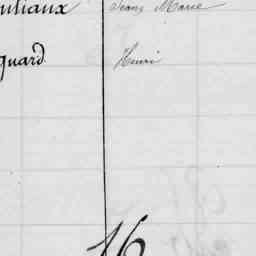 uliaux Jean Marie
quard Henri
16